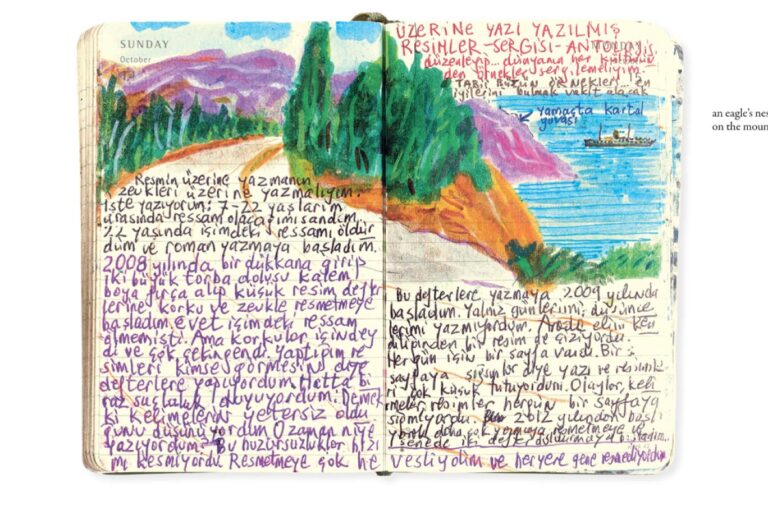 SUNDAY
October
MONDAY
ÜZERİNE YAZI YAZILMIŞ
RESİMLER-SERGİSİ-ANTOLOJİSİ
düzenleyip... dünyanın her kültürün
den örnekler sergilemeliyim.
TABİİ BÜTÜN ÖRNEKLERİ... en
iyilerini bulmak vakit alacak
yamaçta kartal
yuvası
an eagle's nes
on the moun
Resmin üzerine yazmanın
zevkleri üzerine yazmalıyım.
İşte yazıyorum: 7-22 yaşlarım
arasında ressam olacağımı sandım.
22 yaşında içimdeki ressamı öldür
düm ve roman yazmaya başladım.
2008 yılında bir dükkana girip
iki büyük torba dolusu kalem
boya fırça alıp küçük resim defter
lerine korku ve zevkle resmetmeye
başladım. Evet içimdeki ressam
ölmemişti. Ama korkular içindey
di ve çok çekingendi. Yaptığım re
simleri kimse görmesin diye
defterlere yapıyordum. Hatta bi
raz suçluluk duyuyordum: Demek
ki kelimelerin yetersiz oldu
ğunu düşünüyordum. O zaman niye
yazıyordum? Bu huzursuzluklar hızı
mı kesmiyordu. Resmetmeye çok he
Bu defterlere yazmaya 2009 yılında
başladım. Yalnız günlerimi, düşünce
lerimi yazmıyordum. Arada elim ken
diliğinden bir resim de çiziyordu.
Her gün için bir sayfa vardı. Bir
sayfaya sığsınlar diye yazı ve resimle
ri çok küçük tutuyordum. Olaylar, keli
meler, resimler hergün bir sayfaya
sığmıyordu. 2012 yılından başlı
yarak daha çok yazmaya resmetmeye ve
senede iki defter doldurmaya başladım...
vesliydim ve heryere gene resmediyordum